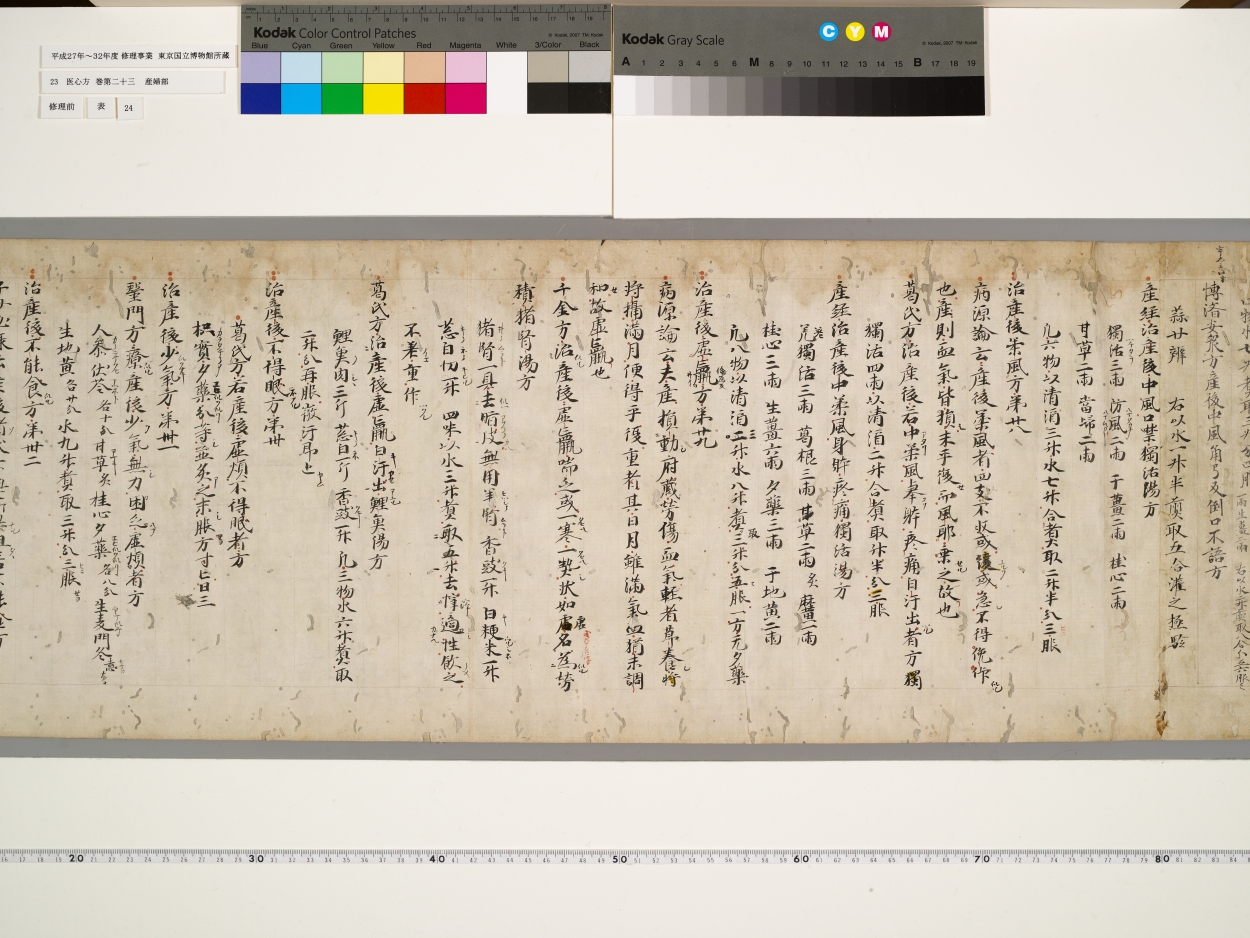 Kodak Color Control Patches
© Kodak, 2007 TM: Kodak
Blue Cyan Green Yellow Red Magenta White 3/Color Black
Kodak Gray Scale
C Y M
© Kodak, 2007 TM: Kodak
A 1 2 3 4 5 6 M 8 9 10 11 12 13 14 15 B 17 18 19
平成27年～32年度 修理事業 東京国立博物館所蔵
23 医心方 巻第二十三 産婦部
修理前 表 24
方産後中風角弓反倒口不語方
蒜廿辨 右以水一升半煮取五合灌之極驗
産経治産後中風口噤獨活湯方
獨活三兩 防風二兩 干薑二兩 桂心二兩
甘草二兩 當歸二兩
凡六物以清酒三升水七升合煮取二升半分三服
治産後柔風方第廿八
病源論云産後柔風者四支不収或緩或急不得俛仰
也産則血氣皆損未平復而風耶乗之故也
葛氏方治産後若中柔風擧躰疼痛自汗出者方獨
獨活四兩以清酒二升合煮取升半分二服
産経治産後中柔風身躰疼痛獨活湯方
獨活三兩 葛根三兩 甘草二兩炙 麻黄一兩
桂心三兩 生薑六兩 夕藥三兩 干地黄二兩
凡八物以清酒二升水八升煮取三升分五服一方无夕藥
治産後虚羸方第廿九
病源論云夫産損動府蔵勞傷血氣輕者節養將
將攝滿月便得平復重者其日月雖滿氣血猶未調
和故虚羸也
千金方治産後虚羸喘乏或一寒一熱状如虐名為蓐勞
積猪腎湯方
猪腎一具去脂皮無用羊腎 香豉一升 白粳米一升
葱白切一升 四味以水三斗煮取五升去滓適性飲之
不差重作
葛氏方治産後虚羸白汗出鯉魚湯方
鯉魚肉二斤 葱白一斤 香豉一升 凡三物水六升煮取
二升分再服微汗耳止
治産後不得眠方第卅
葛氏方若産後虚煩不得眠者方
枳實夕藥分等並炙之末服方寸匕日三
治産後少氣方第卅一
毉門方療産後少氣無力困乏虚煩者方
人參伏苓各十分甘草炙桂心夕藥各八分生麦門冬
生地黄各廿分水九升煮取三升分三服
治産後不能食方第卅二
20 30 40 50 60 70 80